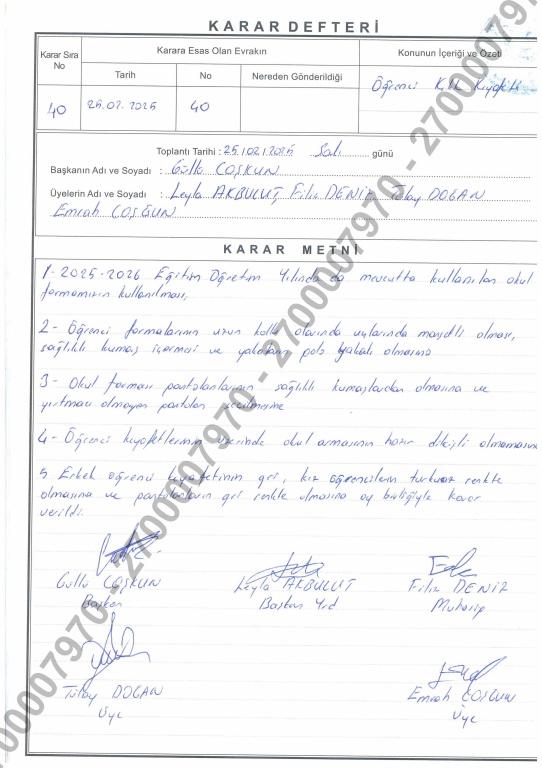 KARAR DEFTERİ
Karar Sıra No
Karara Esas Olan Evrakın
Konunun İçeriği ve Özeti
Tarih
No
Nereden Gönderildiği
40
25.02.2025
40
Öğrenci Kılık Kıyafeti
Toplantı Tarihi : 25/02/2025 Salı günü
Başkanın Adı ve Soyadı : Güllü COŞKUN
Üyelerin Adı ve Soyadı : Leyla AKBULUT, Filiz DENİZ, Tülay DOĞAN
Emrah COŞGUN
KARAR METNİ
1- 2025-2026 Eğitim Öğretim Yılında da mevcutta kullanılan okul
formamızın kullanılması,
2- Öğrenci formalarının uzun kollu olanında uçlarında manşetli olması,
sağlıklı kumaş içermesi ve yakaların polo yakalı olmasına
3- Okul forması pantolonlarının sağlıklı kumaşlardan olmasına ve
yırtmaç olmayan pantolon seçilmesine
4- Öğrenci kıyafetlerinin üzerinde okul armasının hazır dikişli olmamasına
5 Erkek öğrenci kıyafetinin gri, kız öğrencilerin turkuaz renkte
olmasına ve pantolonların gri renkte olmasına oy birliğiyle karar
verildi.
Güllü COŞKUN
Başkan
Leyla AKBULUT
Başkan Yrd
Filiz DENİZ
Muhasip
Tülay DOĞAN
Üye
Emrah COŞGUN
Üye
2700007970 - 2700007970 - 2700007970 - 2700007970